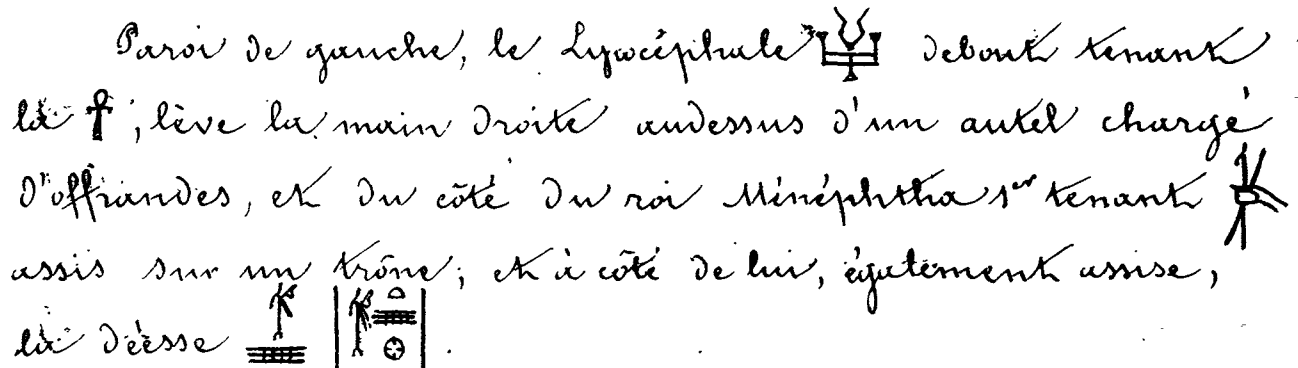 Paroi de gauche, le Lycocéphale debout tenant
la ☥, lève la main droite audessus d'un autel chargé
d'offrandes, et du côté du roi Ménéphtha 1er tenant
assis sur un trône; et à côté de lui, également assise,
la déesse .